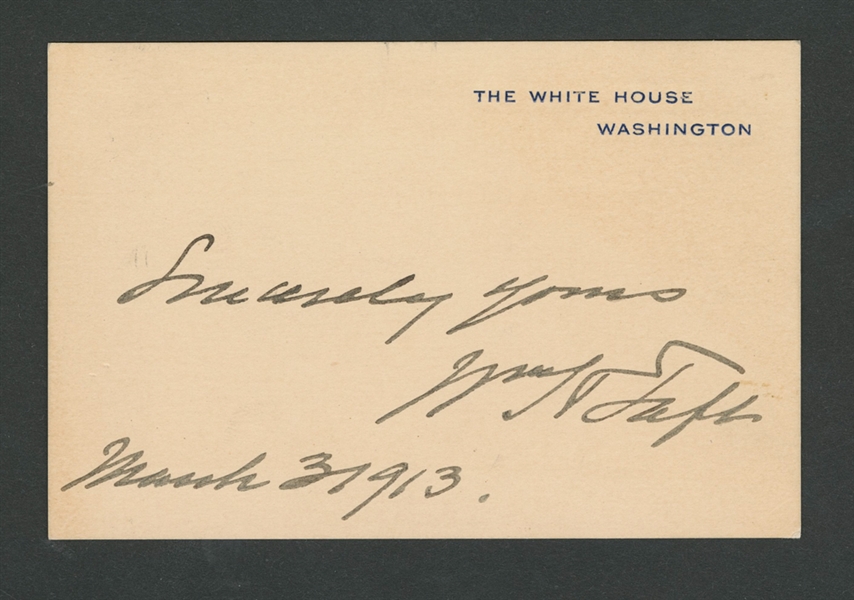 THE WHITE HOUSE
WASHINGTON
Sincerely yours
Wm H Taft
March 3, 1913.